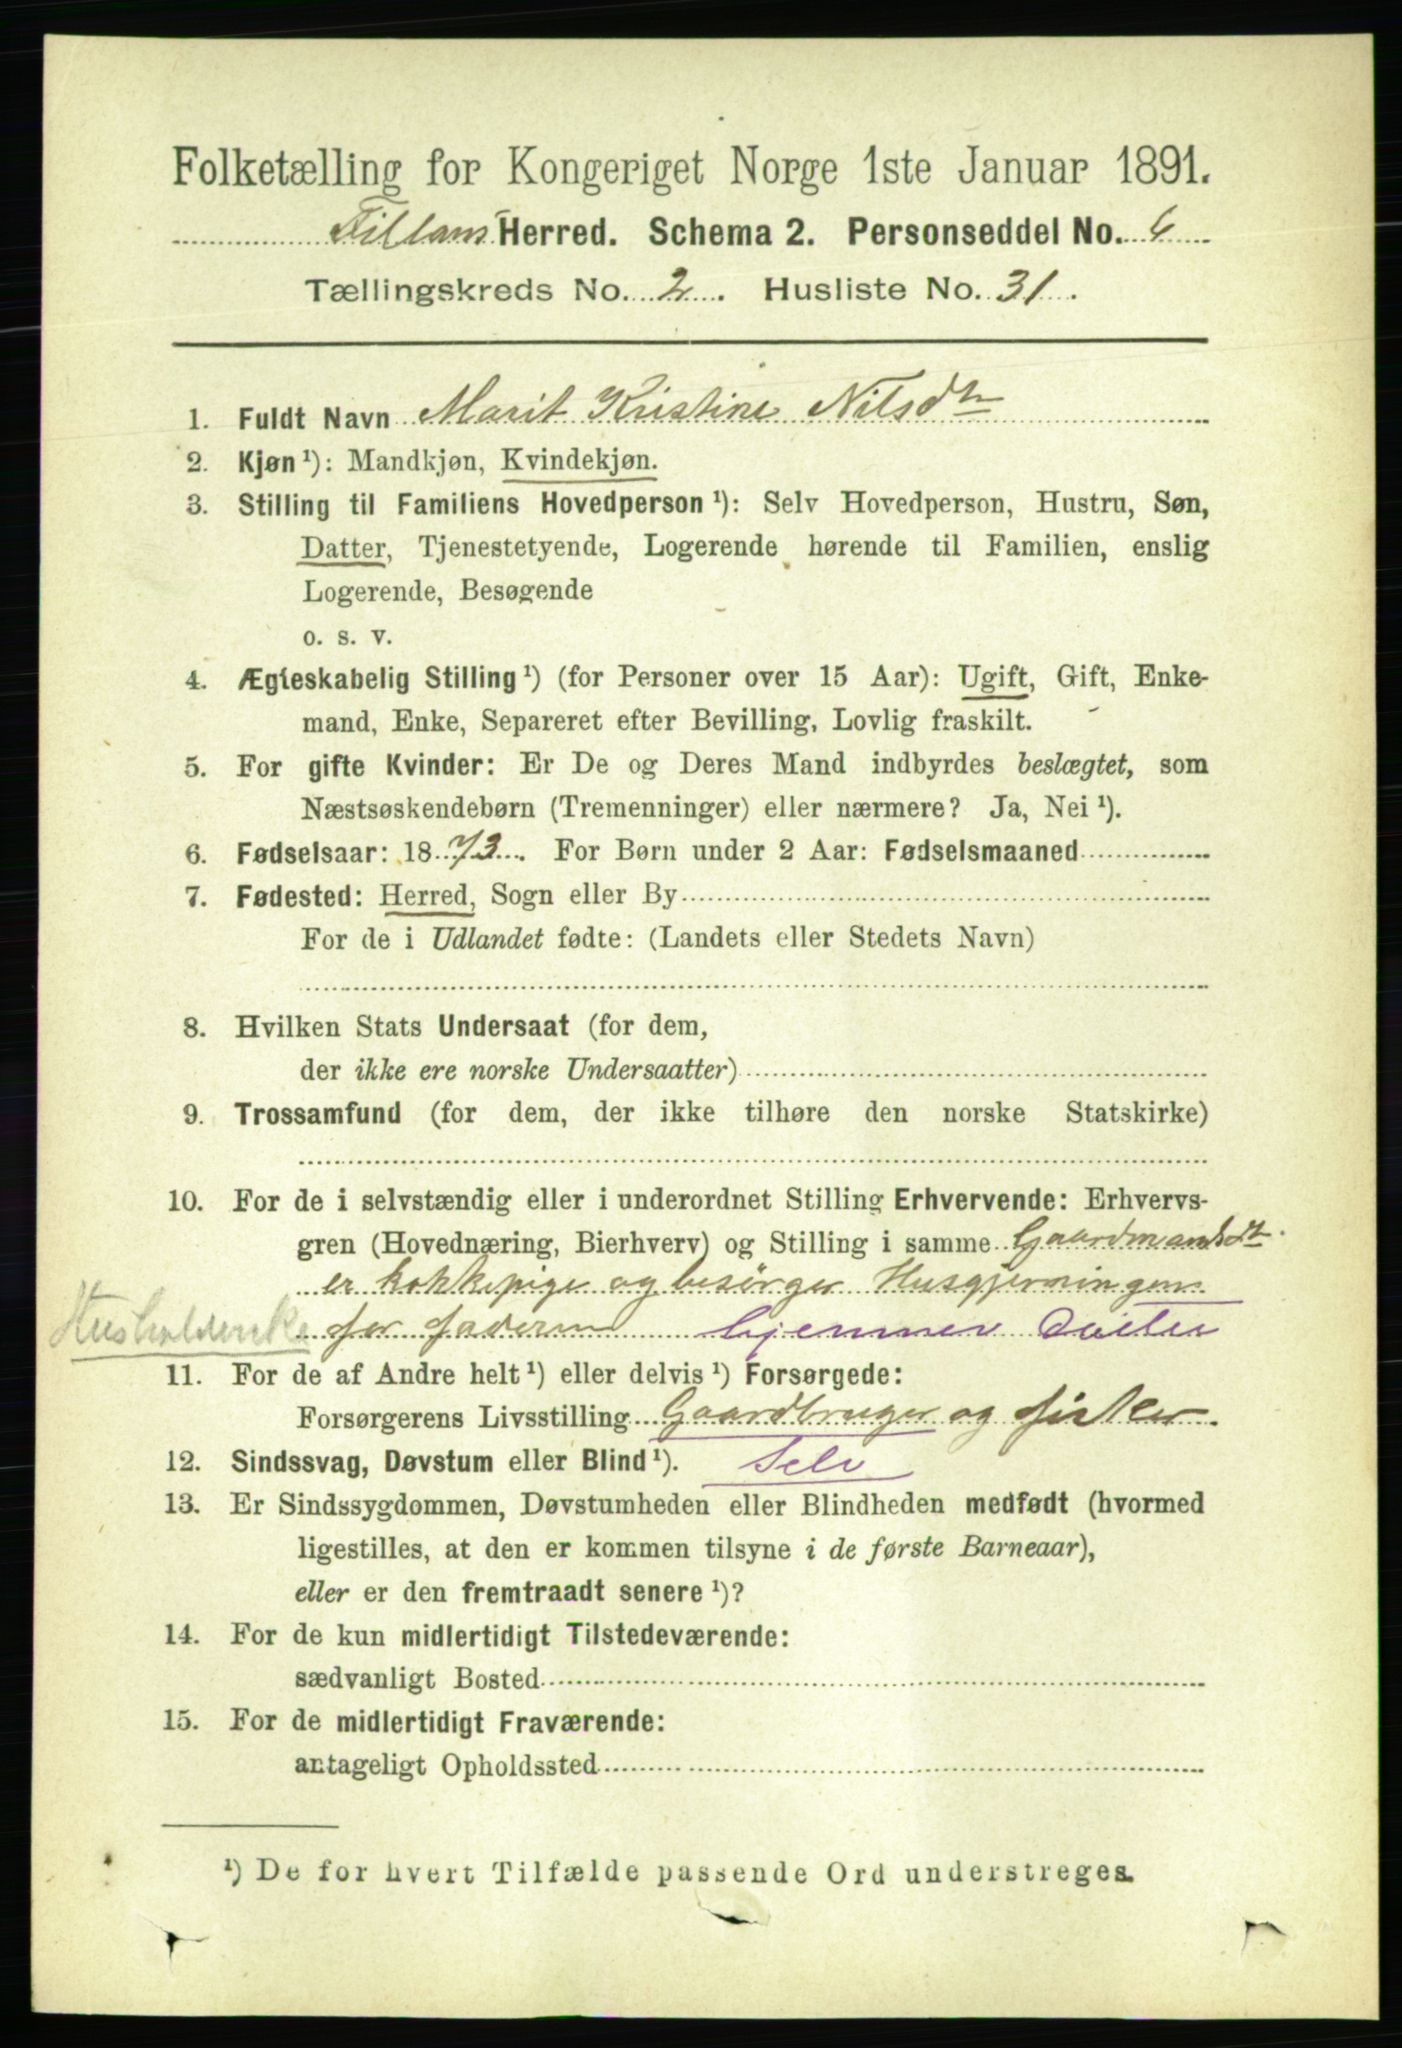 Folketælling for Kongeriget Norge 1ste Januar 1891.
Fillans Herred. Schema 2. Personseddel No. 6
Tællingskreds No. 2. Husliste No. 31.
1. Fuldt Navn Marit Kristine Nilsdtr
2. Kjøn ¹): Mandkjøn, Kvindekjøn.
3. Stilling til Familiens Hovedperson ¹): Selv Hovedperson, Hustru, Søn,
Datter, Tjenestetyende, Logerende hørende til Familien, enslig
Logerende, Besøgende
o. s. v.
4. Ægteskabelig Stilling ¹) (for Personer over 15 Aar): Ugift, Gift, Enke-
mand, Enke, Separeret efter Bevilling, Lovlig fraskilt.
5. For gifte Kvinder: Er De og Deres Mand indbyrdes beslægtet, som
Næstsøskendebørn (Tremenninger) eller nærmere? Ja, Nei ¹).
6. Fødselsaar: 1873. For Børn under 2 Aar: Fødselsmaaned
7. Fødested: Herred, Sogn eller By
For de i Udlandet fødte: (Landets eller Stedets Navn)
8. Hvilken Stats Undersaat (for dem,
der ikke ere norske Undersaatter)
9. Trossamfund (for dem, der ikke tilhøre den norske Statskirke)
10. For de i selvstændig eller i underordnet Stilling Erhvervende: Erhvervs-
gren (Hovednæring, Bierhverv) og Stilling i samme Gaardmandsdtr.
er kokkepige og besørger Husgjerningen
Husholderske for faderen hjemmev Datter
11. For de af Andre helt ¹) eller delvis ¹) Forsørgede:
Forsørgerens Livsstilling Gaardbruger og fisker.
12. Sindssvag, Døvstum eller Blind ¹). Selv
13. Er Sindssygdommen, Døvstumheden eller Blindheden medfødt (hvormed
ligestilles, at den er kommen tilsyne i de første Barneaar),
eller er den fremtraadt senere ¹)?
14. For de kun midlertidigt Tilstedeværende:
sædvanligt Bosted
15. For de midlertidigt Fraværende:
antageligt Opholdssted
¹) De for hvert Tilfælde passende Ord understreges.